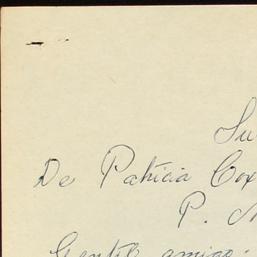 Su
De Patricia Cox
P.
Gentil amigo: